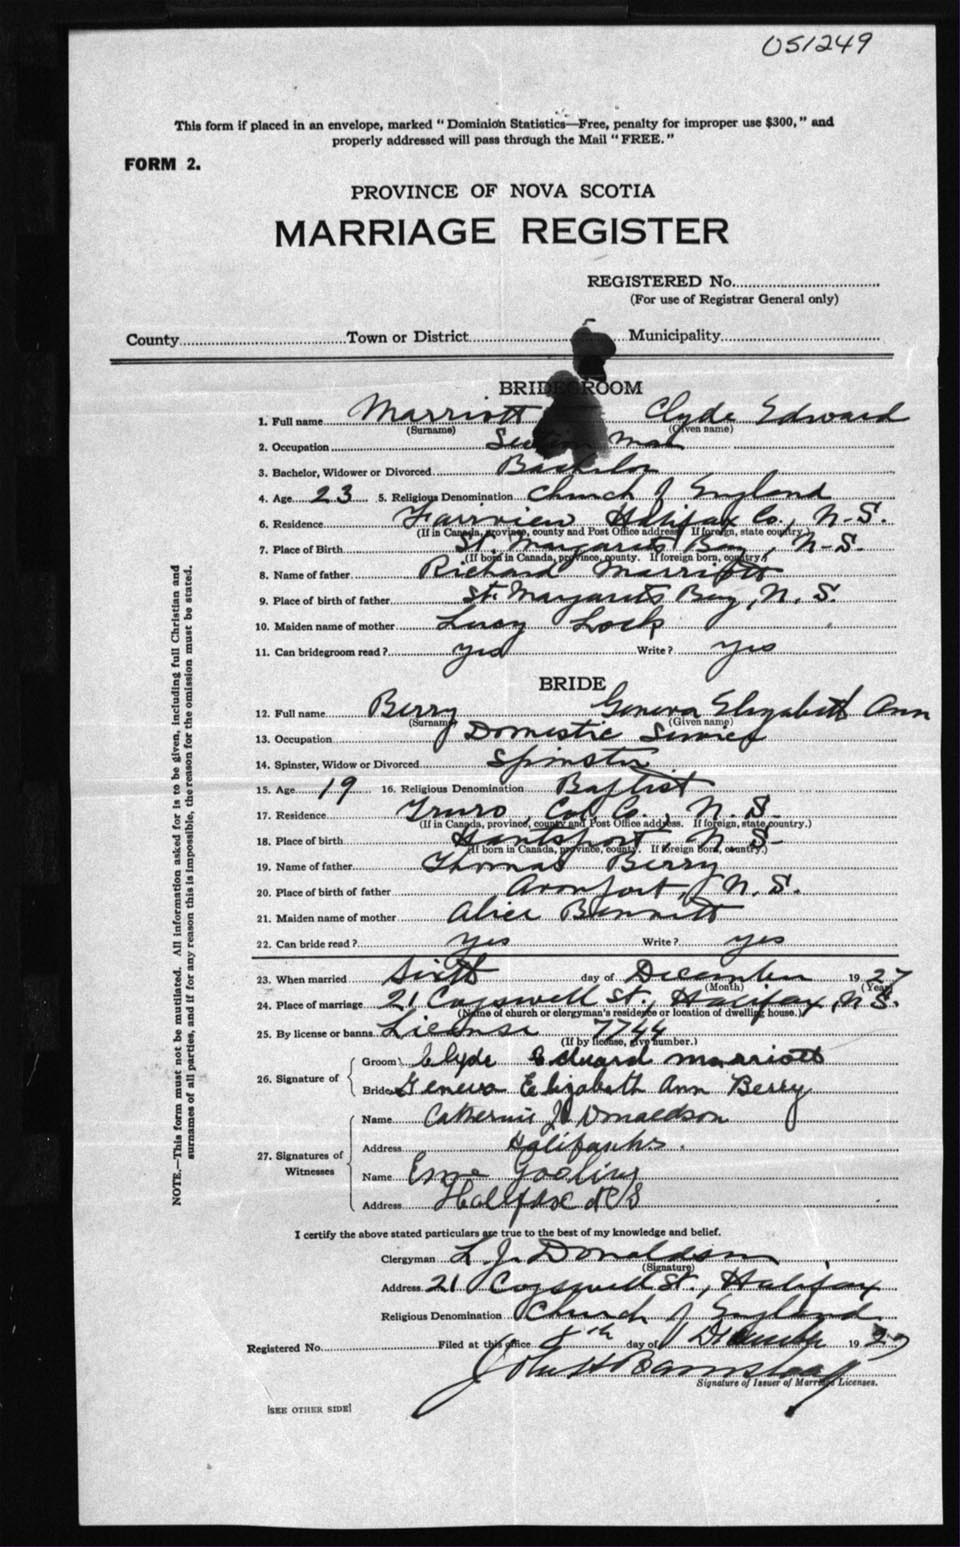 051249
This form if placed in an envelope, marked "Dominion Statistics—Free, penalty for improper use $300," and
properly addressed will pass through the Mail "FREE."
FORM 2.
PROVINCE OF NOVA SCOTIA
MARRIAGE REGISTER
REGISTERED No.
(For use of Registrar General only)
County Town or District Municipality
BRIDEGROOM
1. Full name Marriott Clyde Edward
(Surname) (Given name)
2. Occupation Section Man
3. Bachelor, Widower or Divorced Bachelor
4. Age 23 5. Religious Denomination Church of England
6. Residence Fairview Halifax Co., N.S.
(If in Canada, province, county and Post Office address. If foreign, state country.)
7. Place of Birth St. Margarets Bay, N.S.
(If born in Canada, province, county. If foreign born, country.)
8. Name of father Richard Marriott
9. Place of birth of father St. Margarets Bay, N.S.
10. Maiden name of mother Lucy Lock
11. Can bridegroom read? yes Write? yes
BRIDE
12. Full name Berry Geneva Elizabeth Ann
(Surname) (Given name)
13. Occupation Domestic Service
14. Spinster, Widow or Divorced Spinster
15. Age 19 16. Religious Denomination Baptist
17. Residence Truro, Col. Co., N.S.
(If in Canada, province, county and Post Office address. If foreign, state country.)
18. Place of birth Hantsport, N.S.
(If born in Canada, province, county. If foreign born, country.)
19. Name of father Thomas Berry
20. Place of birth of father Avonport, N.S.
21. Maiden name of mother Alice Bennett
22. Can bride read? yes Write? yes
23. When married Sixth day of December 1927
(Month) (Year)
24. Place of marriage 21 Cogswell St., Halifax, N.S.
(Name of church or clergyman's residence or location of dwelling house.)
25. By license or banns License 7744
(If by license, give number.)
26. Signature of
Groom Clyde Edward Marriott
Bride Geneva Elizabeth Ann Berry
27. Signatures of Witnesses
Name Catherine J. Donaldson
Address Halifax N.S.
Name
Address Halifax N S
I certify the above stated particulars are true to the best of my knowledge and belief.
Clergyman L. J. Donaldson
(Signature)
Address 21 Cogswell St., Halifax
Religious Denomination Church of England
Registered No. Filed at this office 8th day of December 1927
John H Barnstead
Signature of Issuer of Marriage Licenses.
[SEE OTHER SIDE]
NOTE.—This form must not be mutilated. All information asked for is to be given, including full Christian and
surnames of all parties, and if for any reason this is impossible, the reason for the omission must be stated.